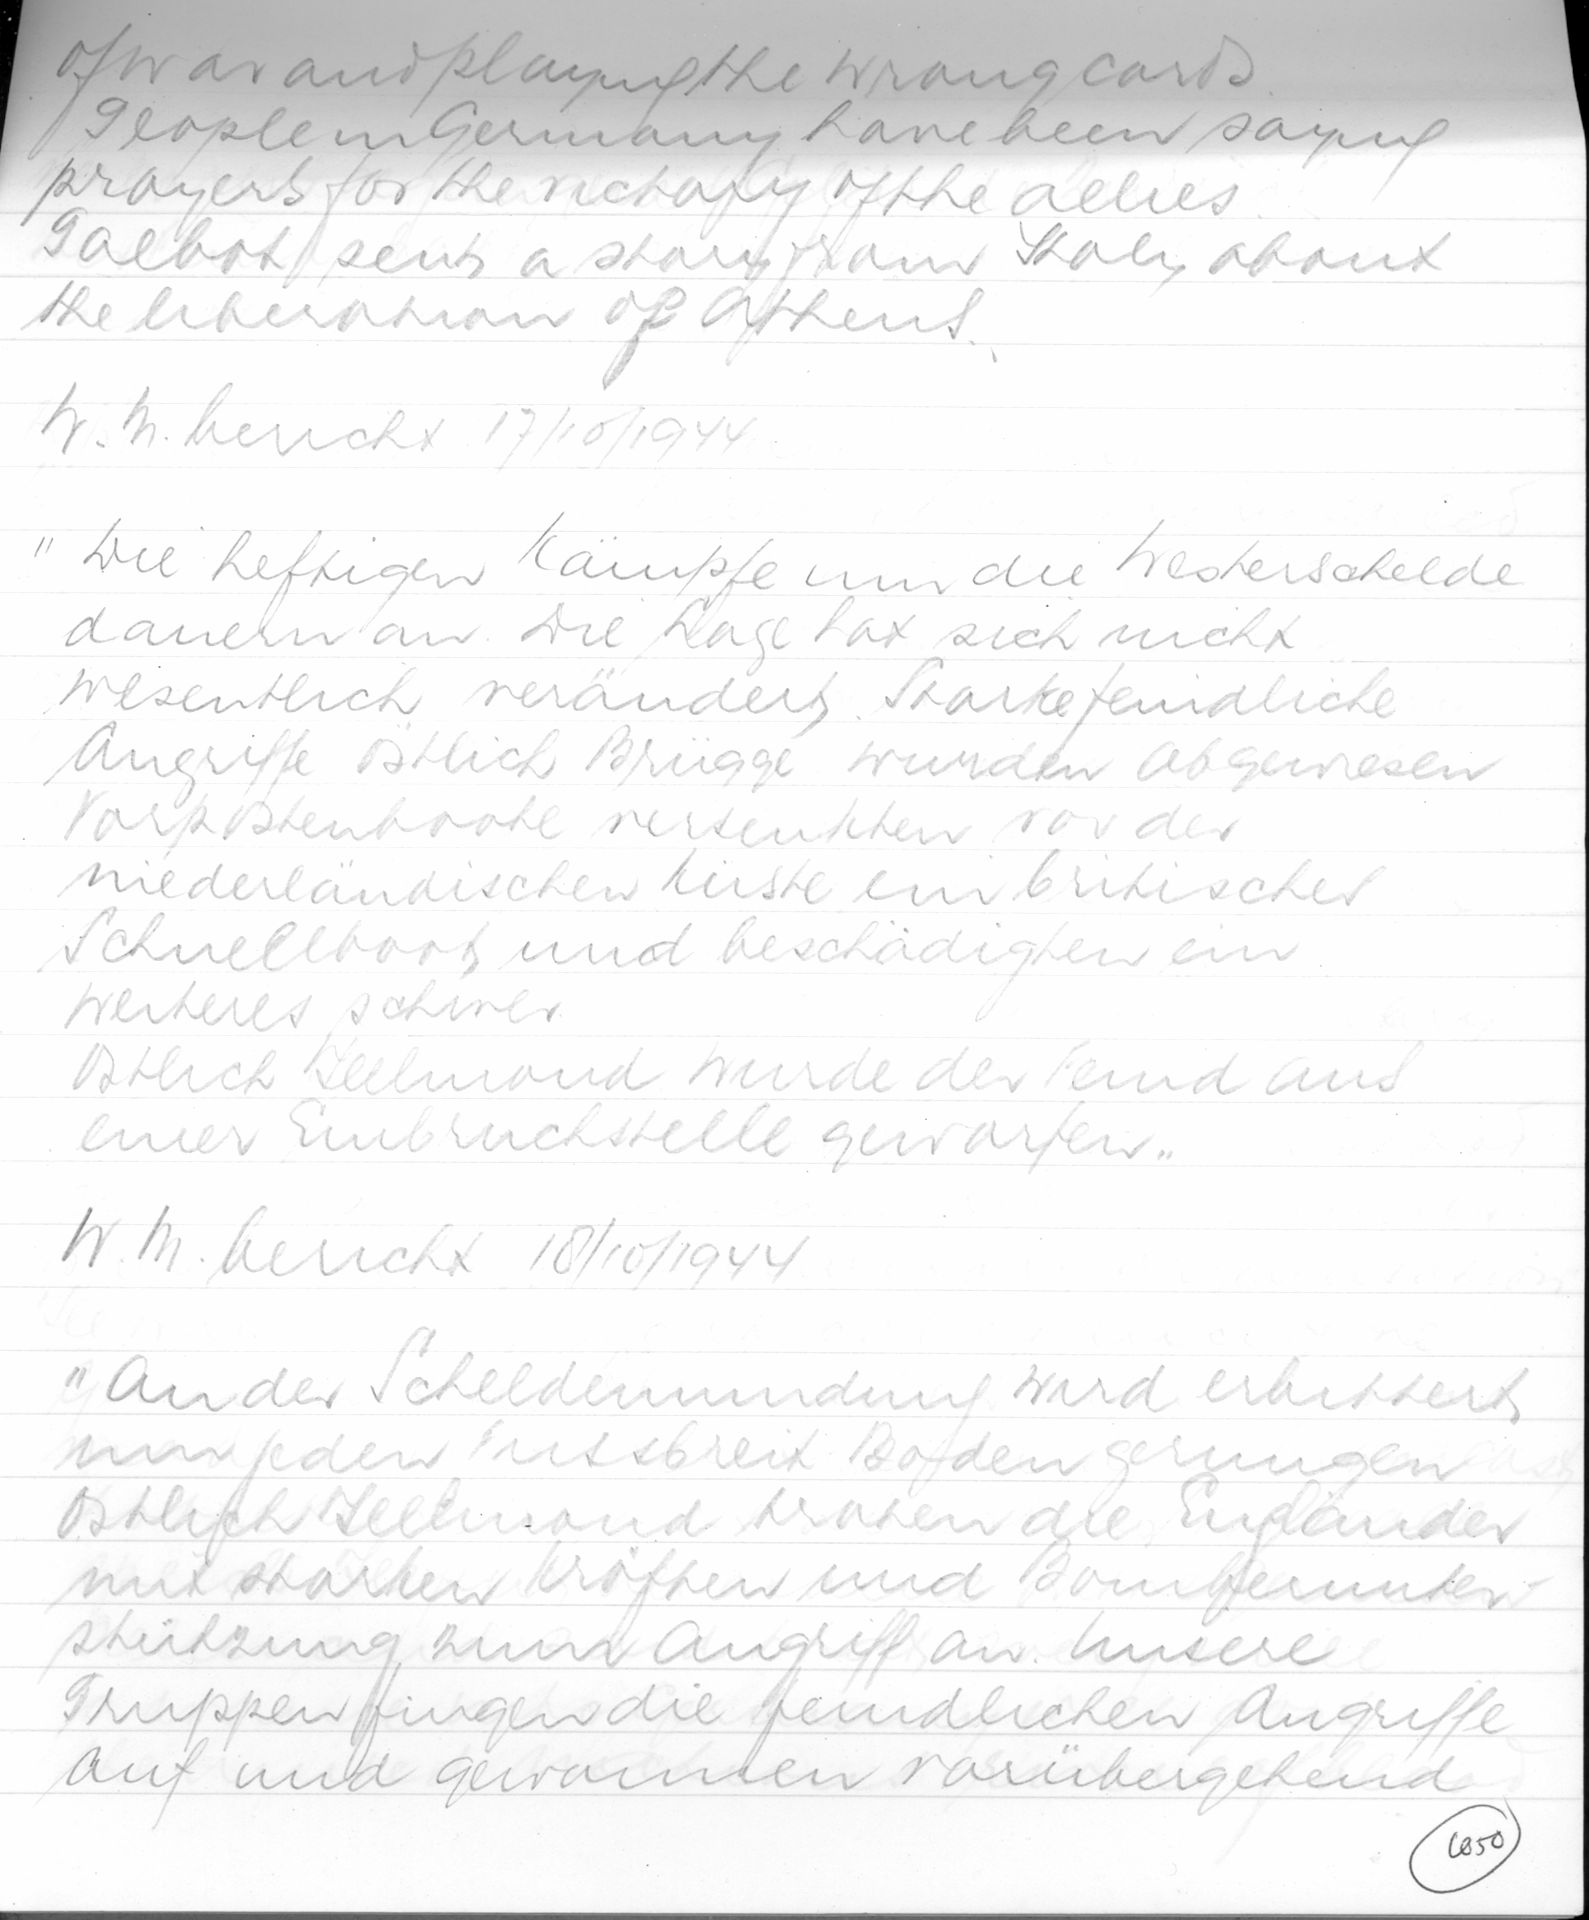 of war and playing the wrong cards.
People in Germany have been saying
prayers for the victory of the allies.
Talbot sent a story from Italy about
the liberation of Athens.
W.M. bericht 17/10/1944
"Die heftigen Kämpfe um die Westerschelde
dauern an. Die Lage hat sich nicht
wesentlich verändert. Starke feindliche
Angriffe östlich Brügge wurden abgewiesen
Vorpostenboote versenkten vor der
niederländischen Küste ein britisches
Schnellboot und beschädigten ein
weiteres schwer.
Östlich Helmond wurde der Feind aus
einer Einbruchstelle geworfen"
W.M. bericht 18/10/1944
"An der Scheldemundung wird erbittert
um jeden Fussbreit Boden gerungen
Östlich Helmond traten die Engländer
mit starken Kräften und Bombenunter-
stützung zum Angriff an. Unsere
Truppen fingen die feindlichen Angriffe
auf und gewannen vorübergehend
1850